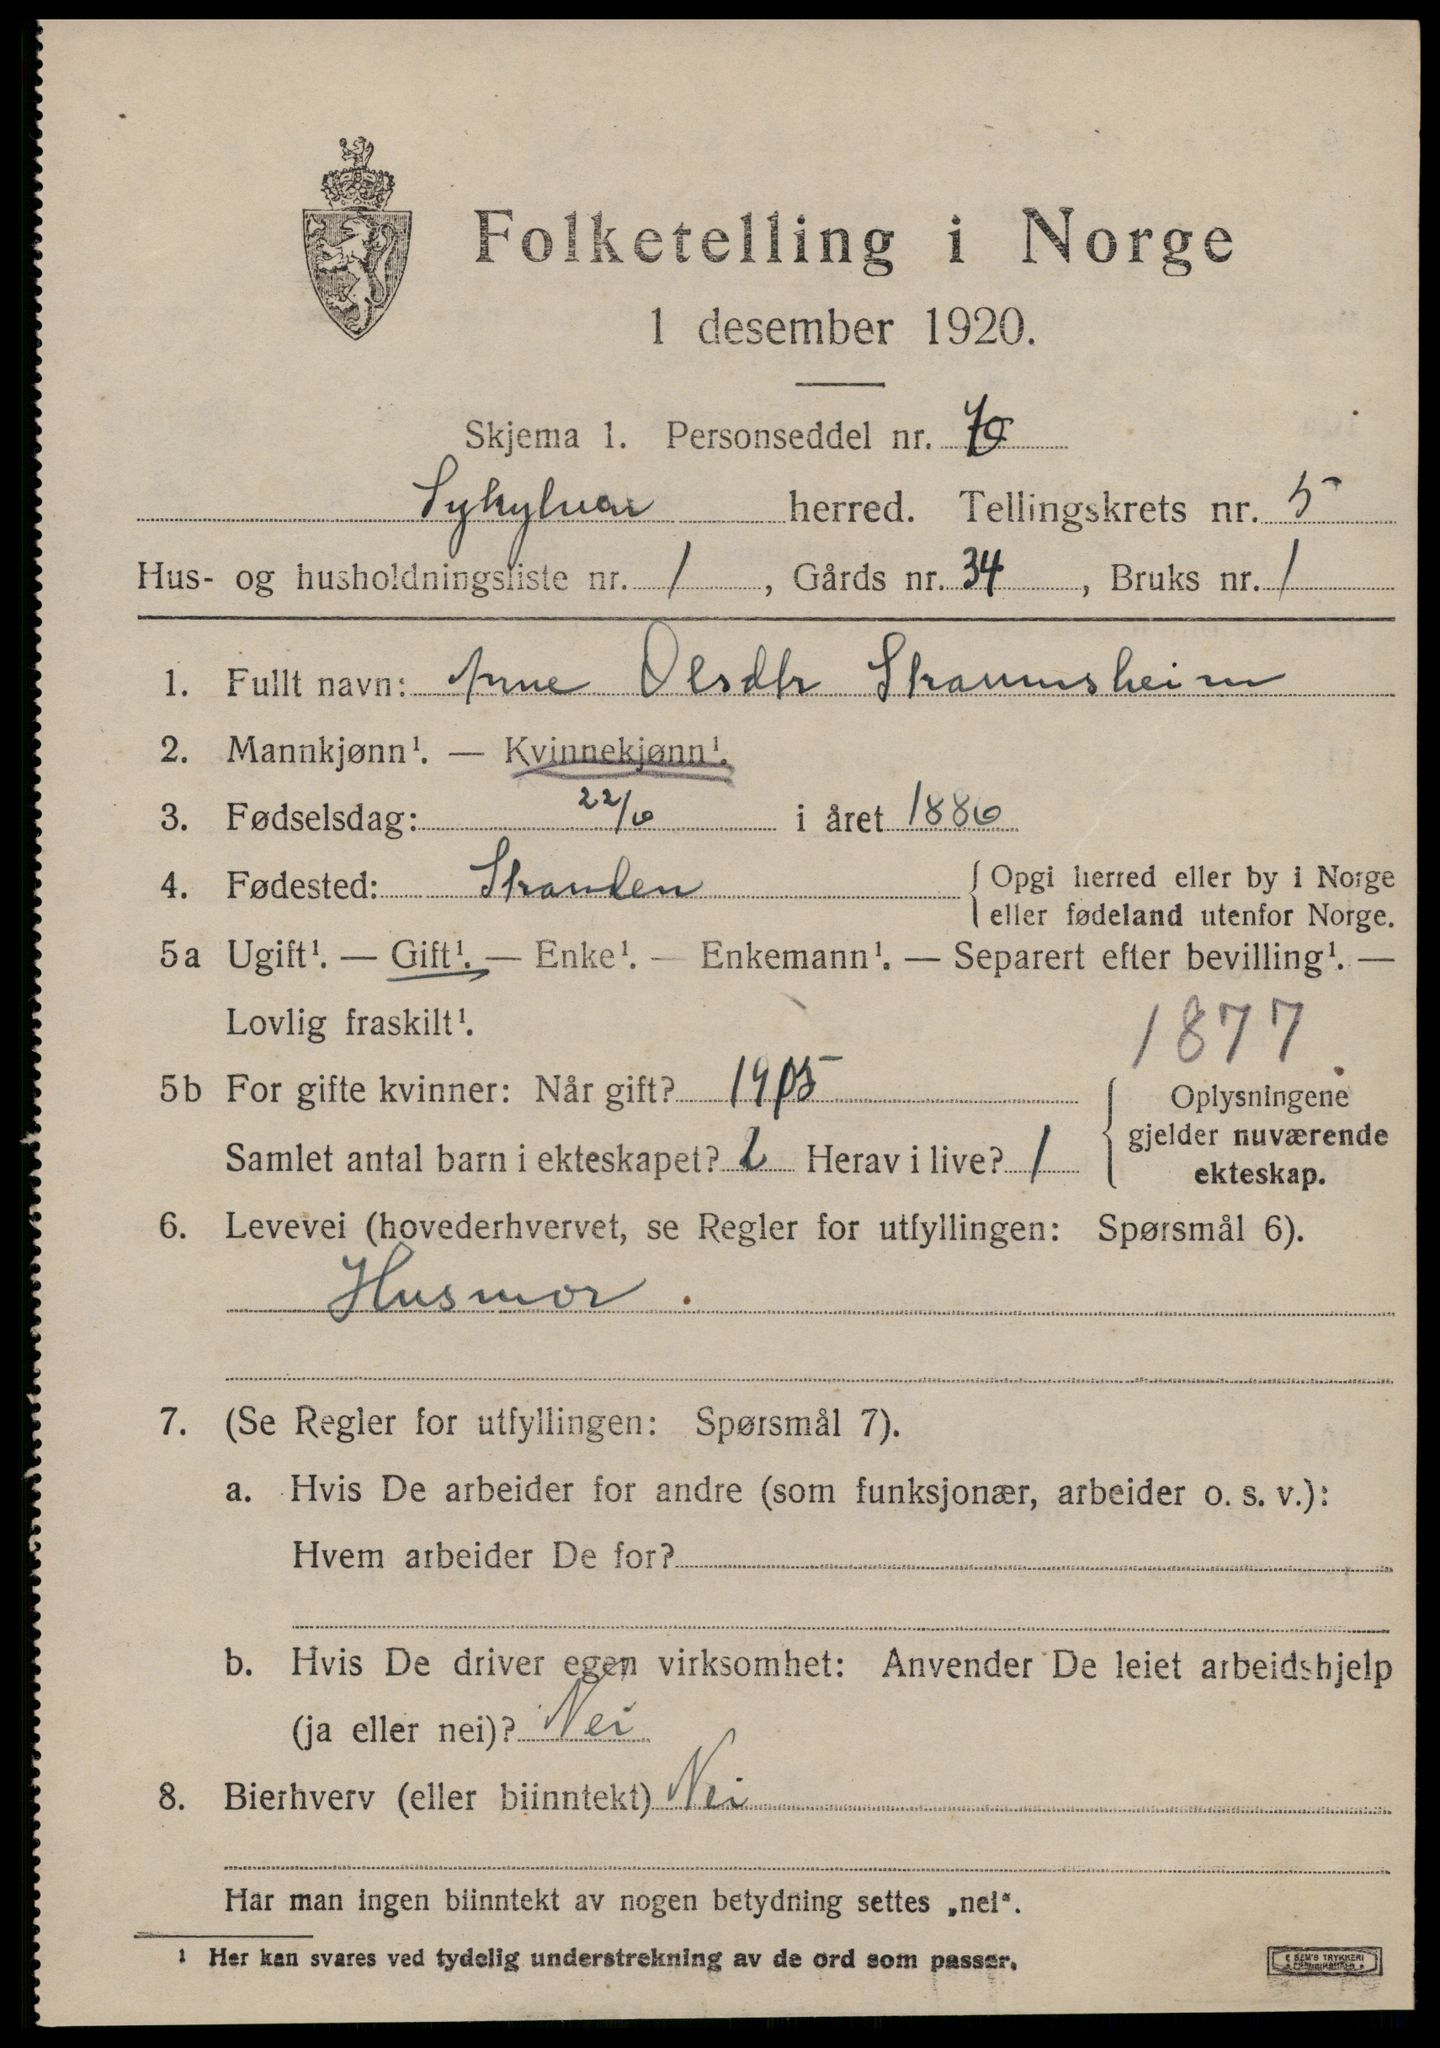 Folketelling i Norge
1 desember 1920.
Skjema 1. Personseddel nr.
Sykylven herred. Tellingskrets nr. 5
Hus- og husholdningsliste nr. 1, Gårds nr. 34, Bruks nr. 1
1. Fullt navn: Anne Olsdtr Straumsheim
2. Mannkjønn¹. — Kvinnekjønn¹.
3. Fødselsdag: 22/6 i året 1886
4. Fødested: Stranden { Opgi herred eller by i Norge
eller fødeland utenfor Norge.
5a Ugift¹. — Gift¹. — Enke¹. — Enkemann¹. — Separert efter bevilling¹. —
Lovlig fraskilt¹.
1877
5b For gifte kvinner: Når gift? 1905
Samlet antal barn i ekteskapet? 2 Herav i live? 1
{ Oplysningene
gjelder nuværende
ekteskap.
6. Levevei (hovederhvervet, se Regler for utfyllingen: Spørsmål 6).
Husmor.
7. (Se Regler for utfyllingen: Spørsmål 7).
a. Hvis De arbeider for andre (som funksjonær, arbeider o. s. v.):
Hvem arbeider De for?
b. Hvis De driver egen virksomhet: Anvender De leiet arbeidshjelp
(ja eller nei)? Nei
8. Bierhverv (eller biinntekt) Nei
Har man ingen biinntekt av nogen betydning settes „nei“.
¹ Her kan svares ved tydelig understrekning av de ord som passer.